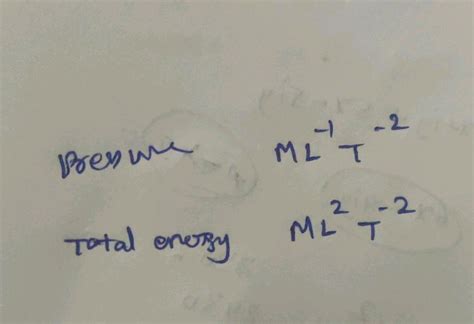 Pressure ML⁻¹T⁻²
Total energy ML²T⁻²